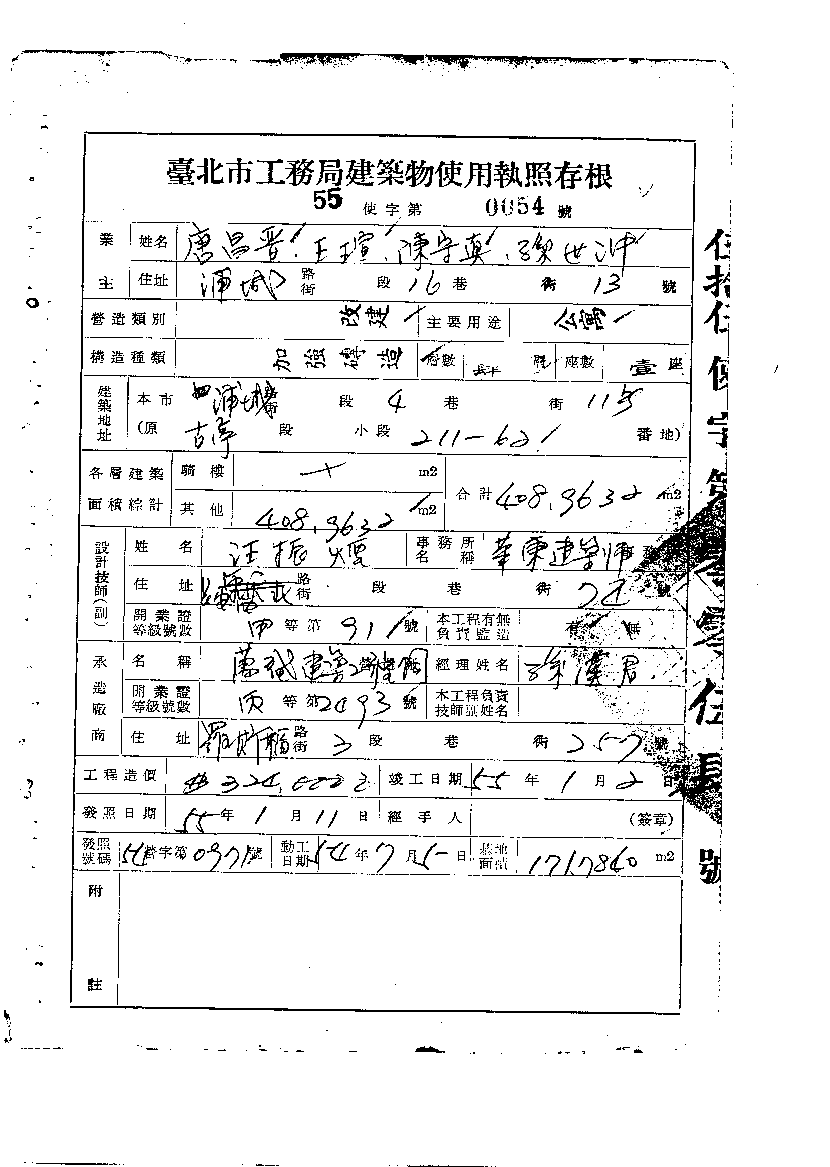 臺北市工務局建築物使用執照存根
55 使字第 0054 號
業主 姓名 唐昌晋 王瑄 陳守真 孫世冲
住址 浦城 路街 段 16 巷 衖 13 號
營造類別 改建 主要用途 公寓
構造種類 加強磚造 層數 肆 層 座數 壹座
建築地址 本市 浦城 街 段 4 巷 衖 11
(原 古亭 段 小段 211-62 番地)
各層建築面積綜計 騎樓 m2 合計 408.9632 m2
其他 408.9632 m2
設計技師(副) 姓名 汪振 事務所名稱 華東建築師
住址 路街 段 巷 衖 號
開業證等級號數 甲 等第 911 號 本工程有無負責監造 有 無
承造廠商 名稱 經理姓名 徐漢君
開業證等級號數 丙 等第 2493 號 本工程負責技師別姓名
住址 羅斯福 路街 3 段 巷 衖 257 號
工程造價 竣工日期 55 年 1 月 2 日
發照日期 55 年 1 月 11 日 經手人 (簽章)
發照號碼 54 營字第 0971 號 動工日期 54 年 7 月 5 日 基地面積 m2
附註
伍拾伍使字第零零伍肆號